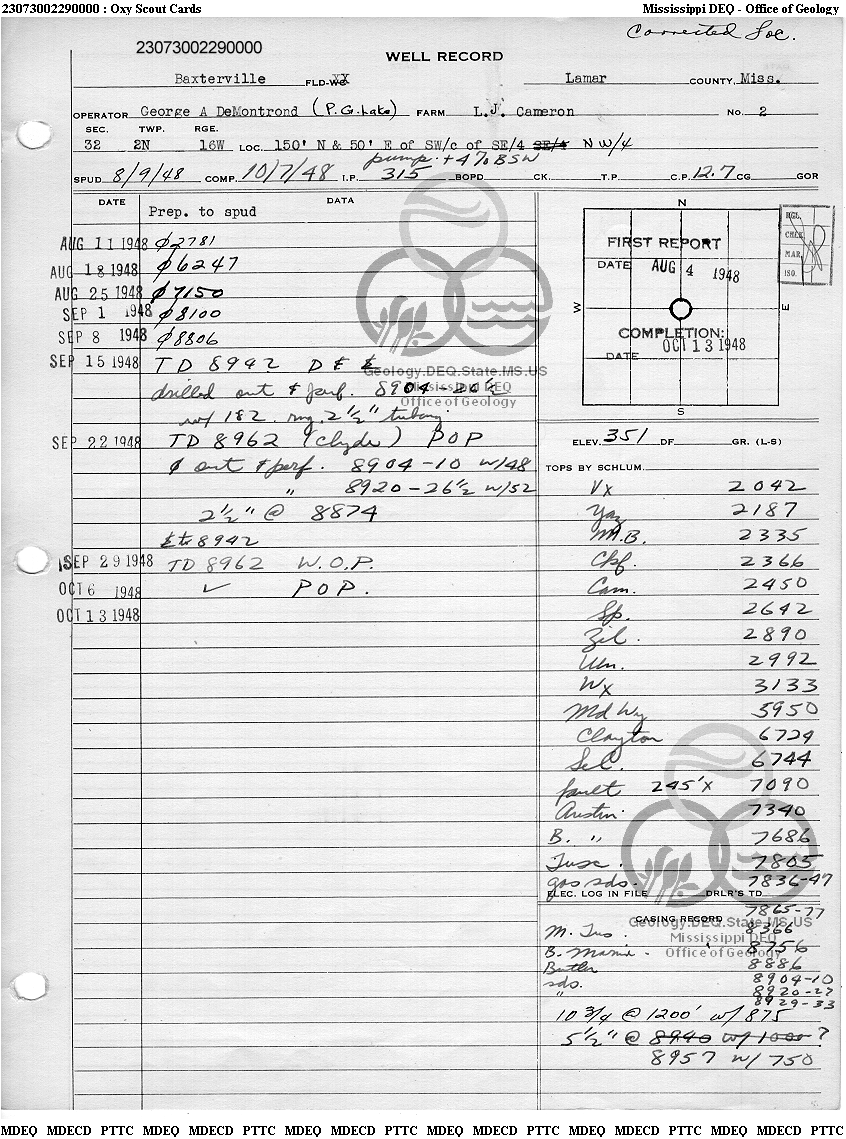 23073002290000 : Oxy Scout Cards Mississippi DEQ - Office of Geology
Corrected Loc.
23073002290000
WELL RECORD
Baxterville FLD-WC XX Lamar COUNTY, Miss.
OPERATOR George A DeMontrond (P.G. Lake) FARM L.J. Cameron No. 2
SEC. TWP. RGE.
32 2N 16W LOC. 150' N & 50' E of SW/c of SE/4 SE/4 NW/4
pump + 4% BSW
SPUD 8/9/48 COMP. 10/7/48 I.P. 315 BOPD CK. T.P. C.P. 12.7 CG GOR
DATE DATA
Prep. to spud
AUG 11 1948 ∅2781
AUG 18 1948 ∅6247
AUG 25 1948 ∅7150
SEP 1 1948 ∅8100
SEP 8 1948 ∅8806
SEP 15 1948 TD 8942 D &
drilled out & perf. 8904-26½
w/ 182. rng. 2½" tubing
SEP 22 1948 TD 8962 (Clyde) POP
∅ out & perf. 8904-10 w/48
" 8920-26½ w/52
2½" @ 8874
8942
SEP 29 1948 TD 8962 W.O.P.
OCT 6 1948 ✓ POP.
OCT 13 1948
Geology.DEQ.State.MS.US
Mississippi DEQ
Office of Geology
N
W E
S
FIRST REPORT
DATE AUG 4 1948
COMPLETION:
DATE OCT 13 1948
HGL.
CHLK
MAR.
ISO.
ELEV. 351 DF GR. (L-S)
TOPS BY SCHLUM.
Vx 2042
Yaz 2187
M.B. 2335
Ckf. 2366
Cam. 2450
Sp. 2642
Zil. 2890
Win. 2992
Wx 3133
Md Wy 5950
Clayton 6729
Sel. 6744
fault 245'x 7090
Austin 7340
B. " 7686
Tusc. 7805
gas sds. 7836-47
ELEC. LOG IN FILE DRLR'S TD
7865-77
CASING RECORD
M. Tus. 8366
B. Marine 8756
Butler 8886
sds. 8904-10
" 8920-27
8929-33
10 3/4 @ 1200' w/ 875
5½" @ 8940 w/ 1000 ?
8957 w/ 750
Geology.DEQ.State.MS.US
Mississippi DEQ
Office of Geology
MDEQ MDECD PTTC MDEQ MDECD PTTC MDEQ MDECD PTTC MDEQ MDECD PTTC MDEQ MDECD PTTC MDEQ MDECD PTTC